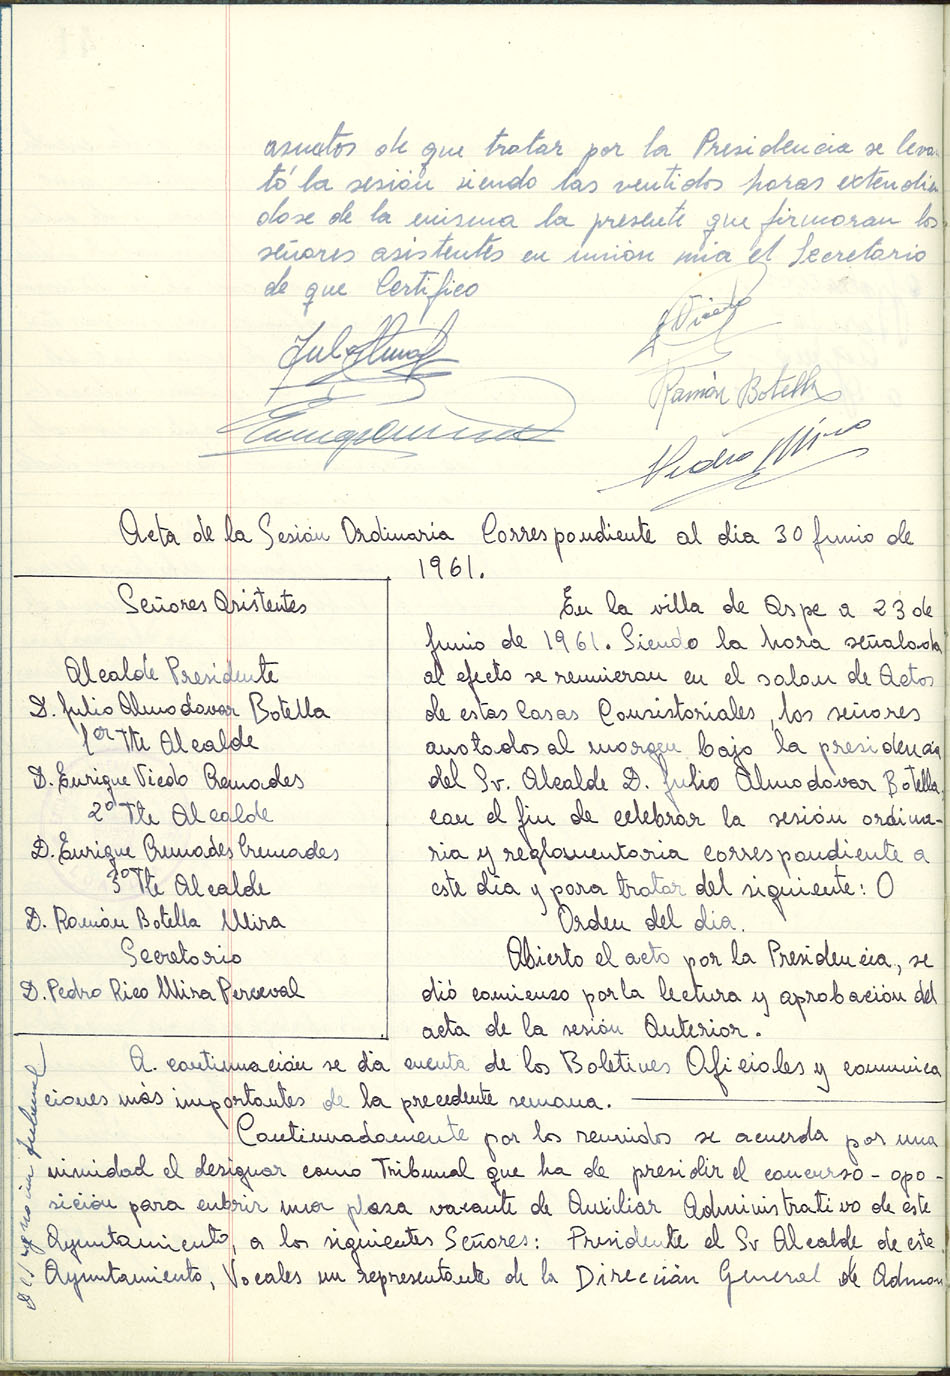 asuntos de que tratar por la Presidencia se levan
tó la sesión siendo las ventidos horas extendien
dose de la misma la presente que firmaran los
señores asistentes en unión mia el Secretario
de que Certifico
E Vicedo
Ramón Botella
Pedro Mira
Acta de la Sesión Ordinaria Correspondiente al dia 30 Junio de
1961.
Señores Asistentes
Alcalde Presidente
D. Julio Almodovar Botella
1er Tte Alcalde
D. Enrique Vicedo Cremades
2º Tte Alcalde
D. Enrique Cremades Cremades
3º Tte Alcalde
D. Ramón Botella Mira
Secretario
D. Pedro Rico Mira Perceval
En la villa de Aspe a 23 de
Junio de 1961. Siendo la hora señalada
al efecto se reunieran en el salon de Actos
de estas Casas Consistoriales, los señores
anotados al margen bajo la presidencia
del Sr. Alcalde D. Julio Almodovar Botella,
con el fin de celebrar la sesión ordina-
ria y reglamentaria correspondiente a
este dia y para tratar del siguiente: O
Orden del dia.
Abierto el acto por la Presidencia, se
dió comienzo por la lectura y aprobación del
acta de la sesión Anterior.
A. continuación se da cuenta de los Boletines Oficiales y comunica
ciones más importantes de la precedente semana.
Continuadamente por los reunidos se acuerda por una
nimidad el designar como Tribunal que ha de presidir el concurso-opo-
sición para cubrir una plaza vacante de Auxiliar Administrativo de este
Ayuntamiento, a los siguientes Señores: Presidente el Sr Alcalde de este
Ayuntamiento, Vocales un representante de la Dirección General de Admon
Designación tribunal